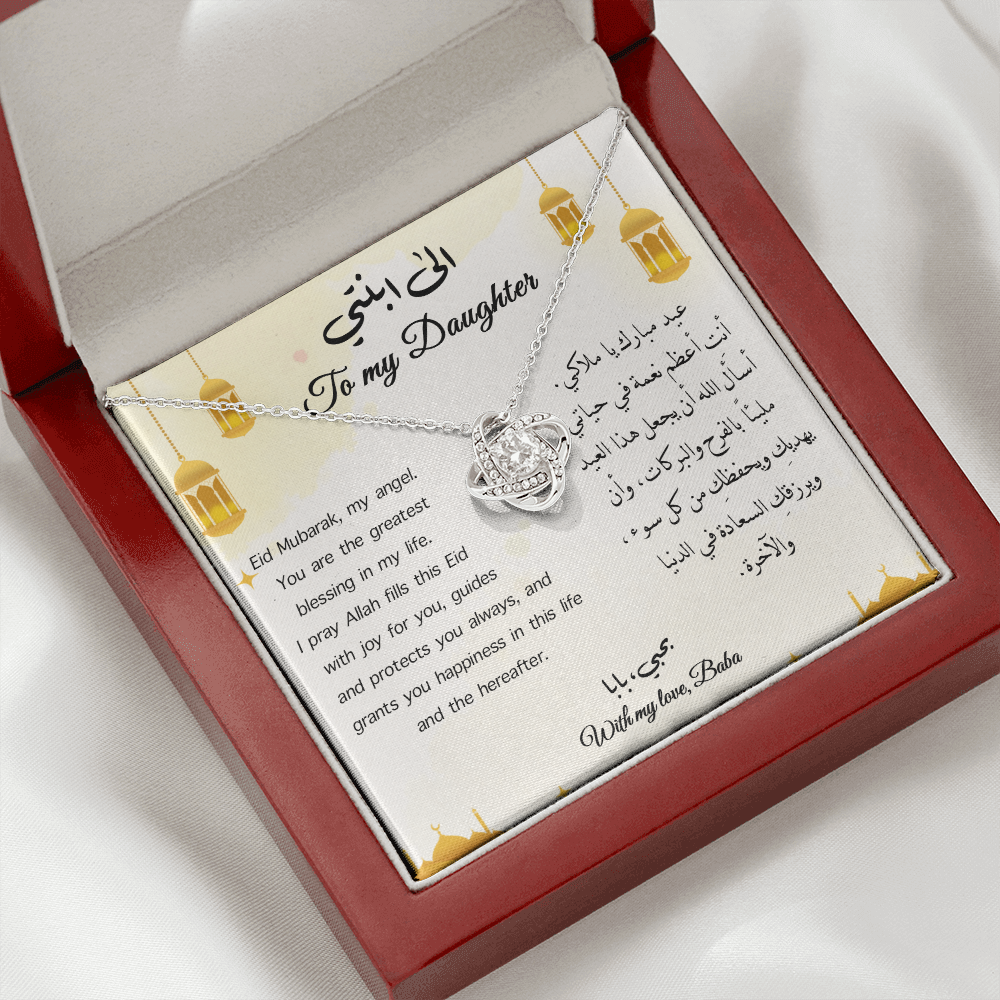 الىٰ ابنتي
To my Daughter
Eid Mubarak, my angel.
You are the greatest
blessing in my life.
I pray Allah fills this Eid
with joy for you, guides
and protects you always, and
grants you happiness in this life
and the hereafter.
عيد مبارك يا ملاكي.
أنت أعظم نعمة في حياتي
أسأل الله أن يجعل هذا العيد
مليئًا بالفرح والبركات، وأن
يهديكِ ويحفظكِ من كل سوء،
ويرزقكِ السعادة في الدنيا
والآخرة.
بحبي، بابا
With my love, Baba